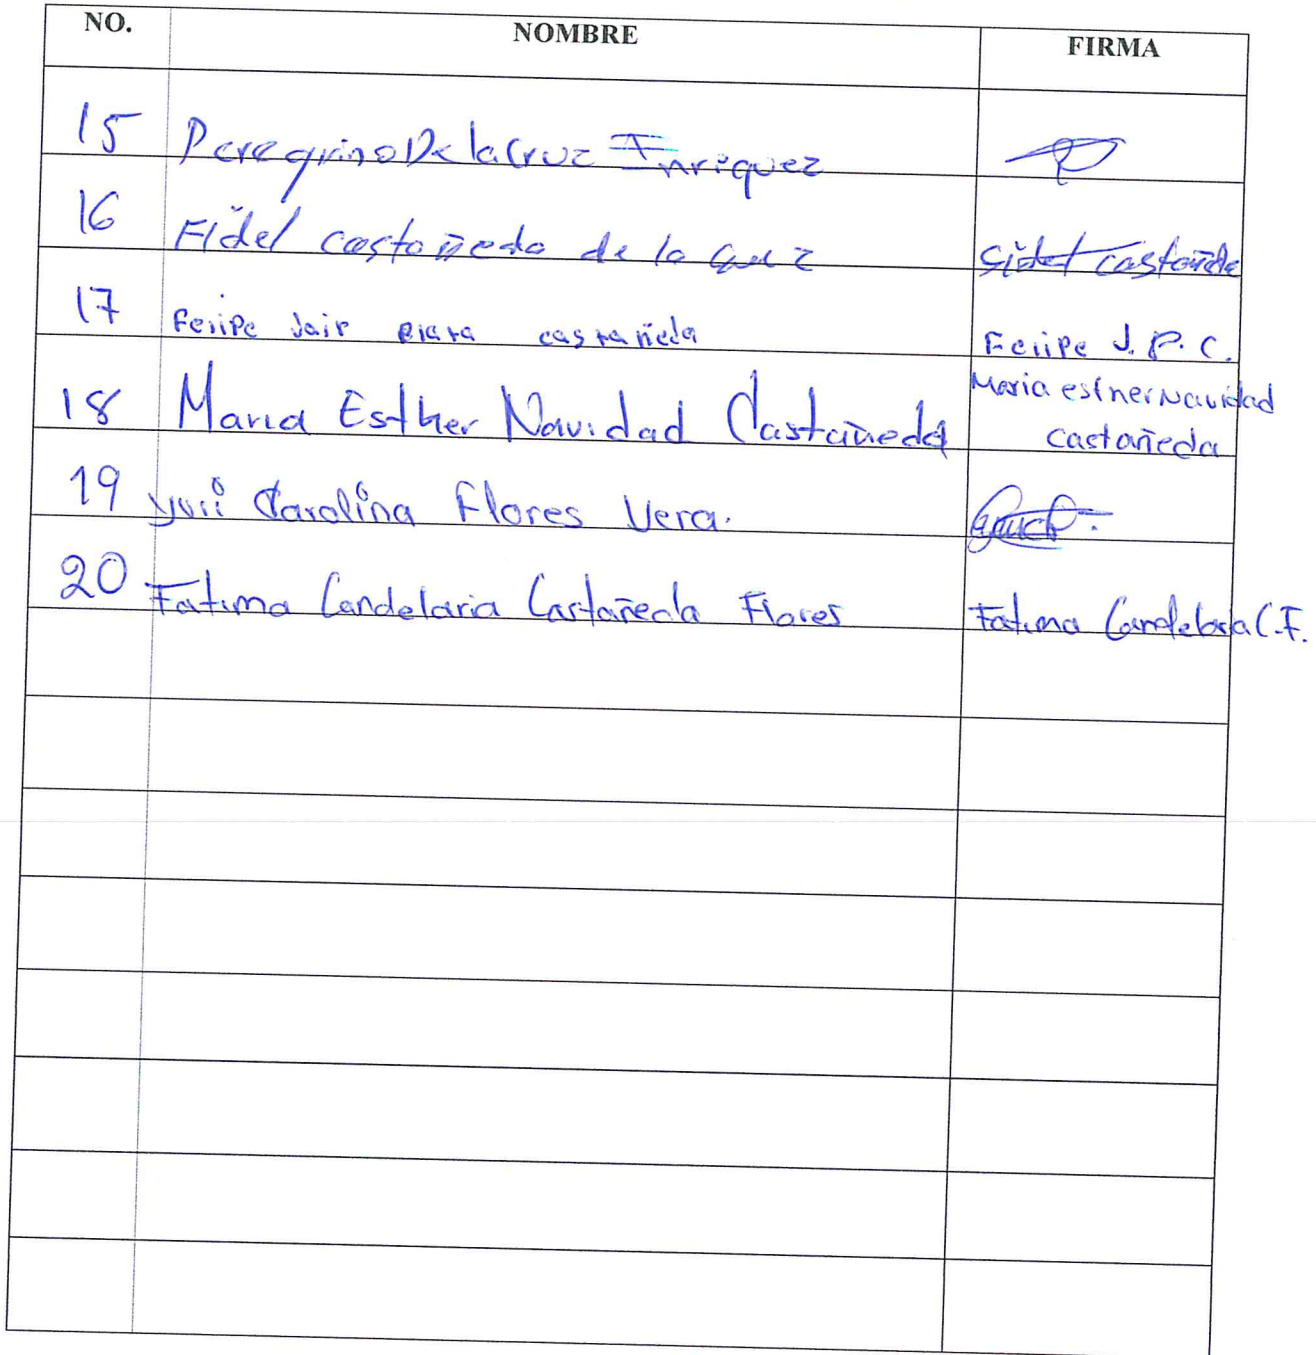 NO. NOMBRE FIRMA
15 Peregrino De la Cruz Inriquez
16 Fidel castañeda de la cruz Fidel castañeda
17 Felipe Jair castañeda Felipe J. P. C.
18 Maria Esther Navidad Castañeda Maria esther Navidad
castañeda
19 yuri Carolina Flores Vera.
20 Fatima Candelaria Castañeda Flores Fatima Candelaria C.F.